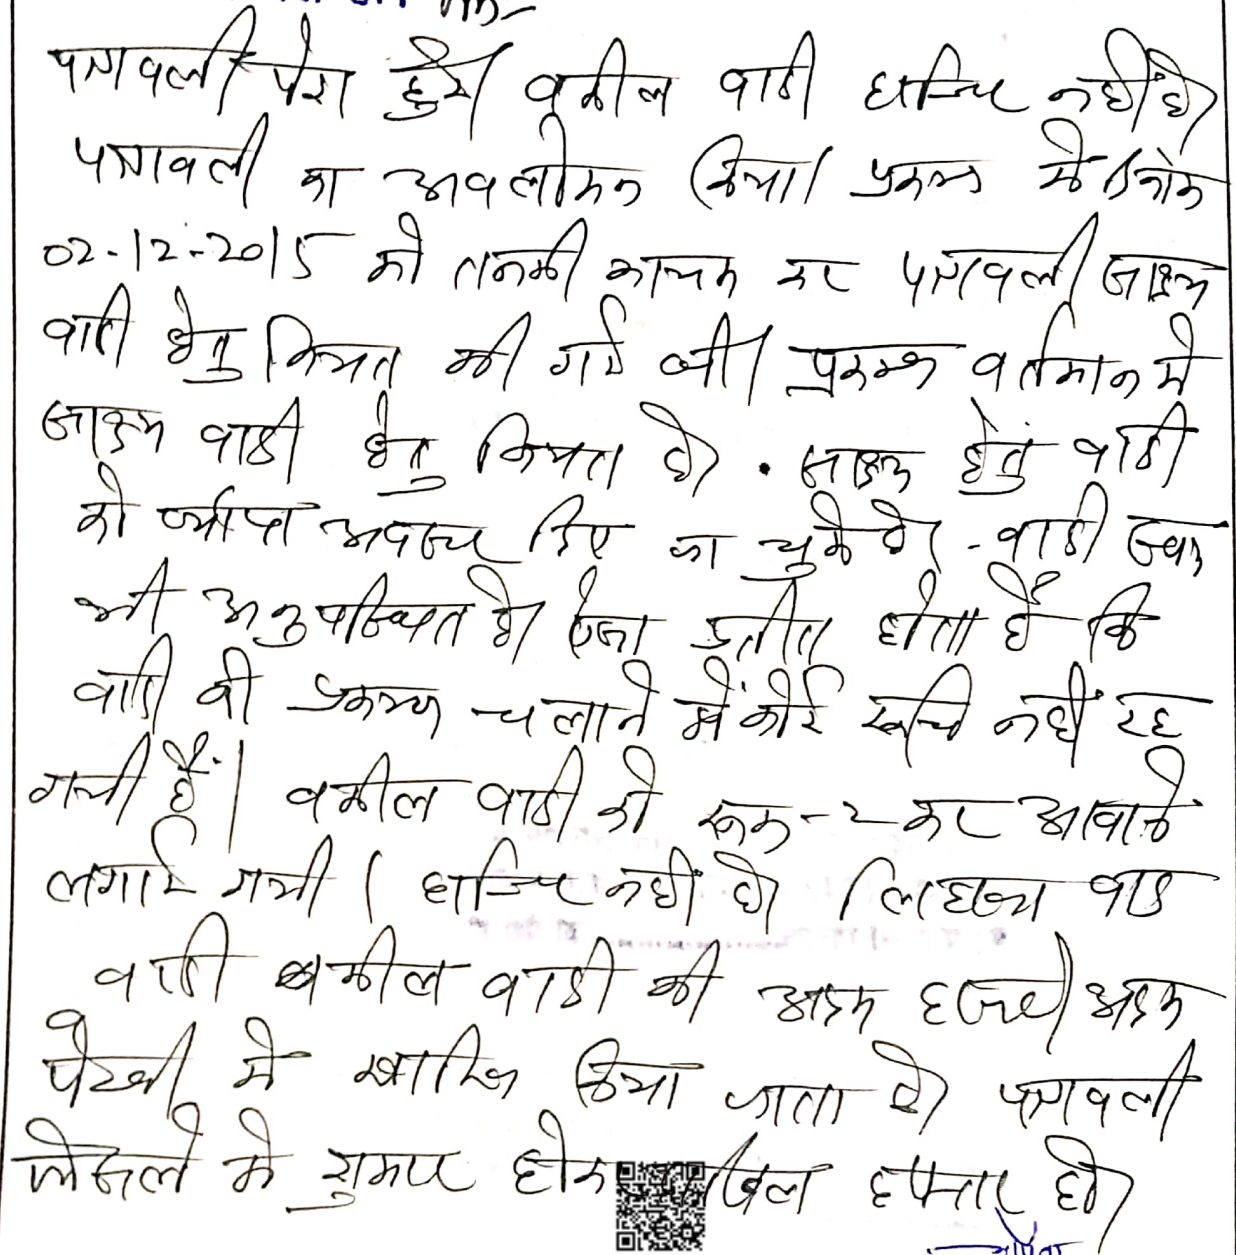 पत्रावली पेश हुई। वकील वादी हाजिर नहीं है।
पत्रावली का अवलोकन किया। प्रकरण में दिनांक
02-12-2015 को तनकी कायम कर पत्रावली साक्ष्य
वादी हेतु नियत की गई थी। प्रकरण वर्तमान में
साक्ष्य वादी हेतु नियत है। साक्ष्य हेतु वादी
को पर्याप्त अवसर दिए जा चुके है। वादी स्वयं
भी अनुपस्थित है। ऐसा प्रतीत होता है कि
वादी की प्रकरण चलाने में कोई रूचि नहीं रह
गयी है। वकील वादी को रूक-2 कर आवाजे
लगाई गयी। हाजिर नहीं है। लिहाजा वाद
वादी वकील वादी की अदम हाजरी अदम
पैरवी में खारिज किया जाता है। पत्रावली
फैसले में शुमार होकर दाखिल दफ्तर हो।